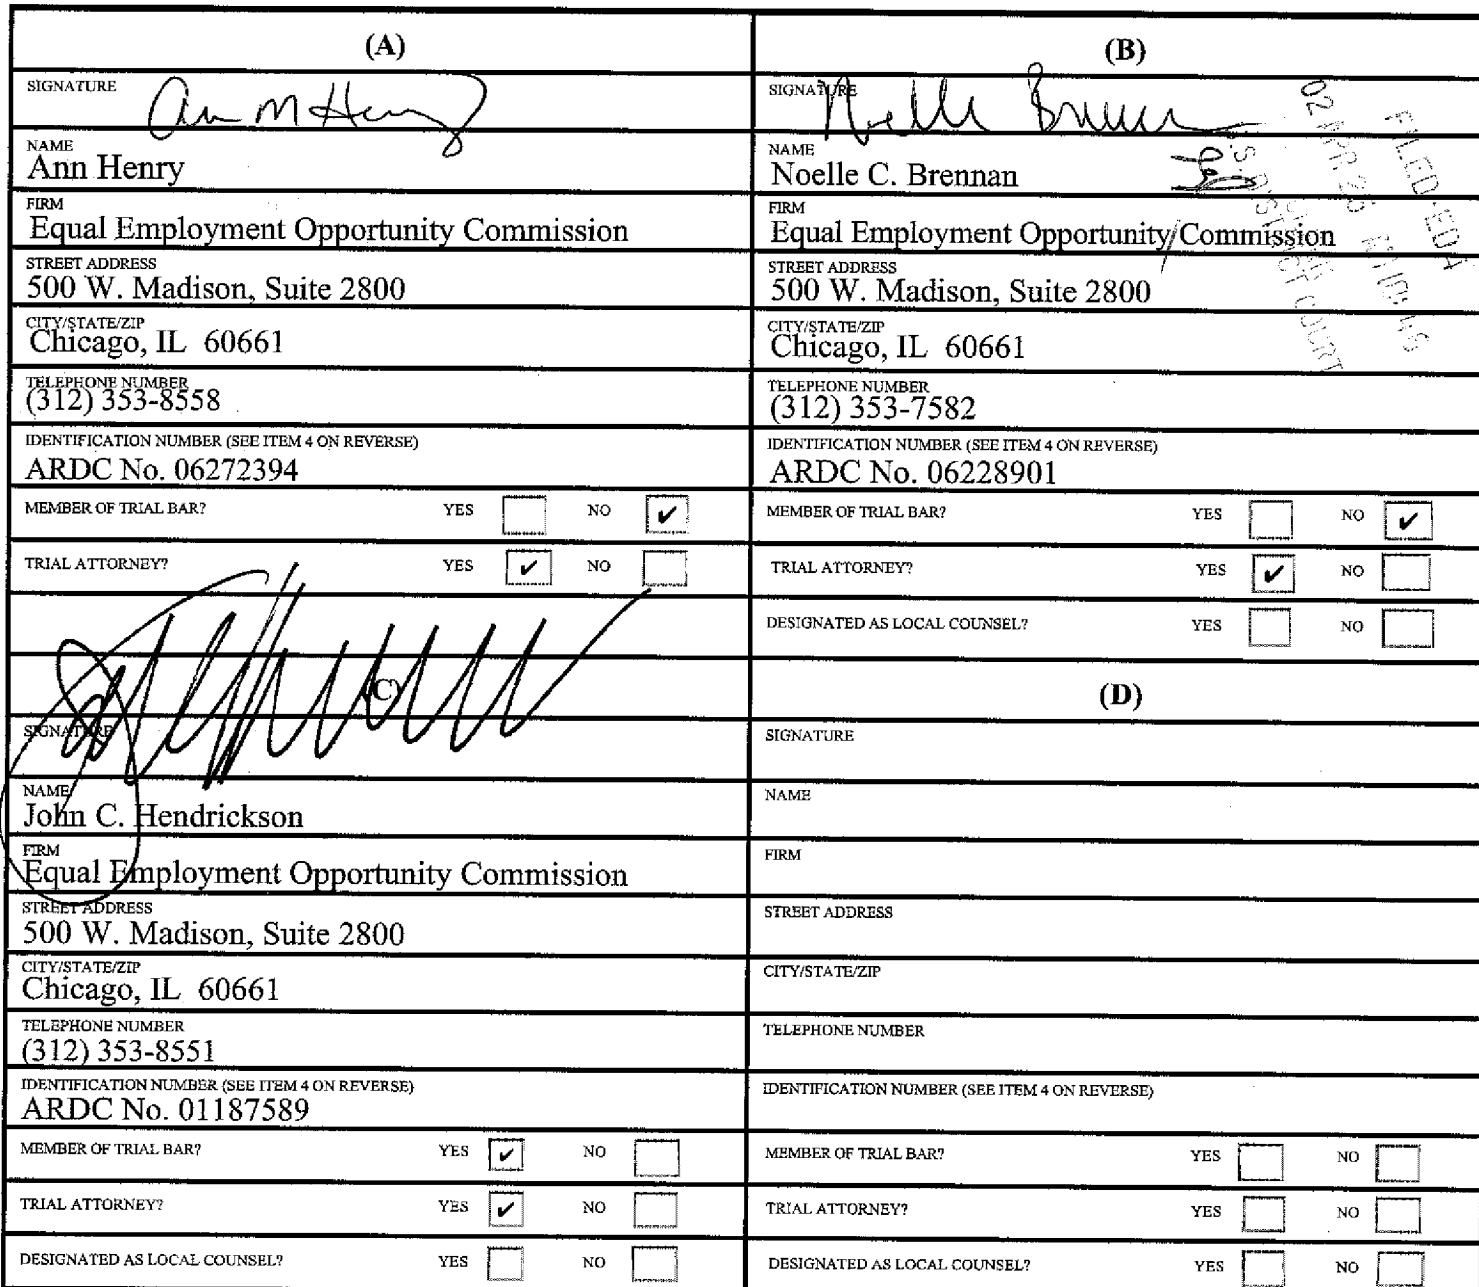 (A)
SIGNATURE Ann M Henry
NAME
Ann Henry
FIRM
Equal Employment Opportunity Commission
STREET ADDRESS
500 W. Madison, Suite 2800
CITY/STATE/ZIP
Chicago, IL 60661
TELEPHONE NUMBER
(312) 353-8558
IDENTIFICATION NUMBER (SEE ITEM 4 ON REVERSE)
ARDC No. 06272394
MEMBER OF TRIAL BAR? YES NO ✔
TRIAL ATTORNEY? YES ✔ NO
(B)
SIGNATURE Noelle Brennan
NAME
Noelle C. Brennan
FIRM
Equal Employment Opportunity Commission
STREET ADDRESS
500 W. Madison, Suite 2800
CITY/STATE/ZIP
Chicago, IL 60661
TELEPHONE NUMBER
(312) 353-7582
IDENTIFICATION NUMBER (SEE ITEM 4 ON REVERSE)
ARDC No. 06228901
MEMBER OF TRIAL BAR? YES NO ✔
TRIAL ATTORNEY? YES ✔ NO
DESIGNATED AS LOCAL COUNSEL? YES NO
FILED-ED4
02 APR
U.S. DISTRICT COURT
(C)
SIGNATURE
NAME
John C. Hendrickson
FIRM
Equal Employment Opportunity Commission
STREET ADDRESS
500 W. Madison, Suite 2800
CITY/STATE/ZIP
Chicago, IL 60661
TELEPHONE NUMBER
(312) 353-8551
IDENTIFICATION NUMBER (SEE ITEM 4 ON REVERSE)
ARDC No. 01187589
MEMBER OF TRIAL BAR? YES ✔ NO
TRIAL ATTORNEY? YES ✔ NO
DESIGNATED AS LOCAL COUNSEL? YES NO
(D)
SIGNATURE
NAME
FIRM
STREET ADDRESS
CITY/STATE/ZIP
TELEPHONE NUMBER
IDENTIFICATION NUMBER (SEE ITEM 4 ON REVERSE)
MEMBER OF TRIAL BAR? YES NO
TRIAL ATTORNEY? YES NO
DESIGNATED AS LOCAL COUNSEL? YES NO